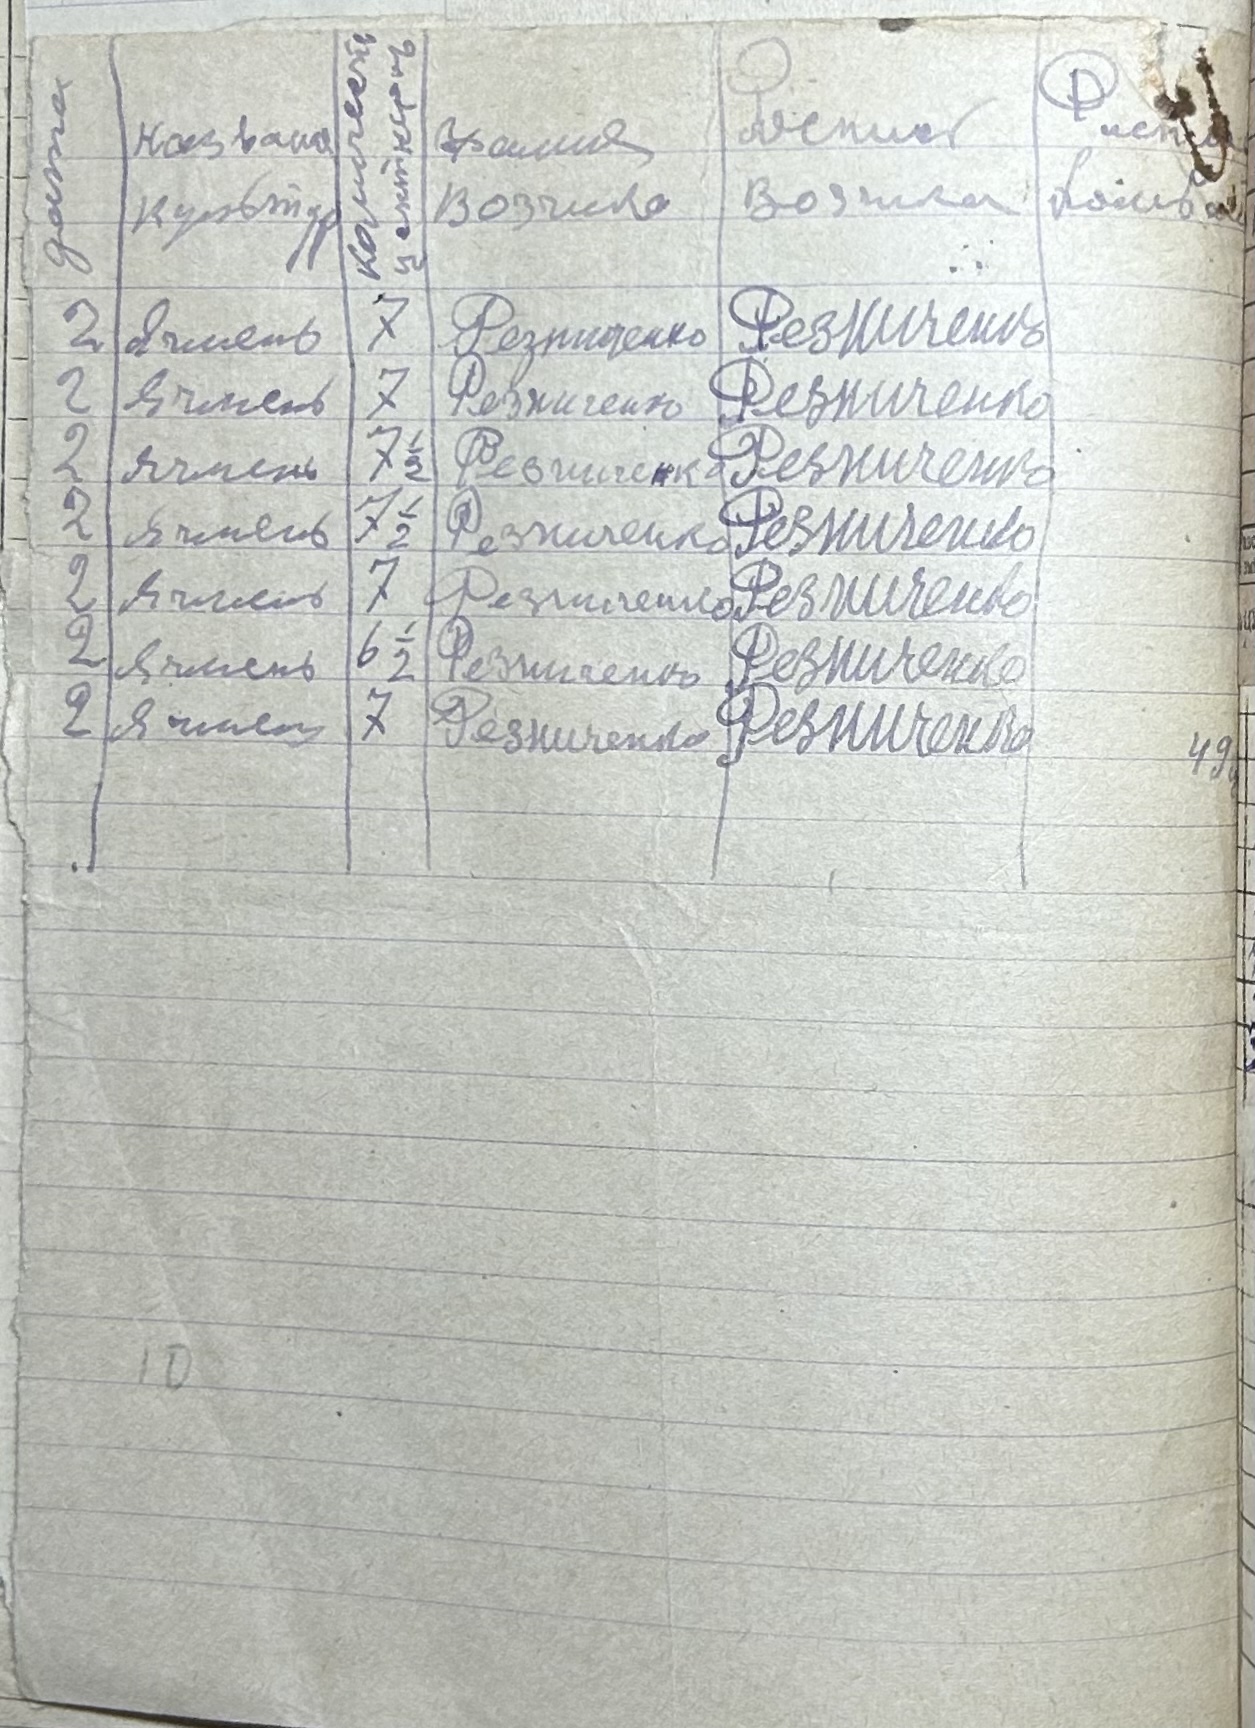 дата Названия Количеств Центнера Фамилия Роспись Роспись
Культур Возчика Возчика
2 Ячмень 7 Резниченко Резниченко
2 Ячмень 7 Резниченко Резниченко
2 Ячмень 7 1/2 Резниченко Резниченко
2 Ячмень 7 1/2 Резниченко Резниченко
2 Ячмень 7 Резниченко Резниченко
2 Ячмень 6 1/2 Резниченко Резниченко
2 Ячмень 7 Резниченко Резниченко
49ц
10